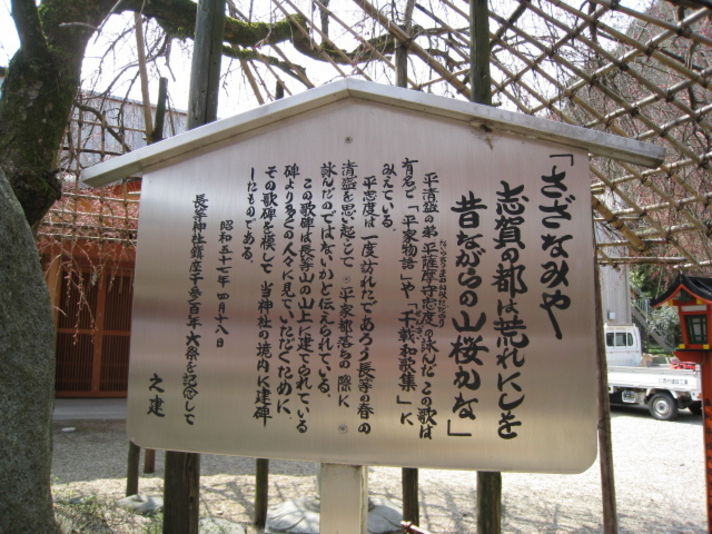 「さざなみや
志賀の都は荒れにしを
昔ながらの山桜かな」
平清盛の弟 平薩摩守忠度の詠んだこの歌は
有名な「平家物語」や「千載和歌集」に
みえている。
平忠度は一度訪れたであろう長等の春の
清盛を思い起こして 平家都落ちの際に
詠んだのではないかと伝えられている。
この歌碑は長等山の山上に建てられている
碑より多くの人々に見ていただくために、
その歌碑を模して 当神社の境内に建碑
したものである。
昭和三十七年 四月十八日
長等神社鎮座千参百年 大祭を記念して
之建